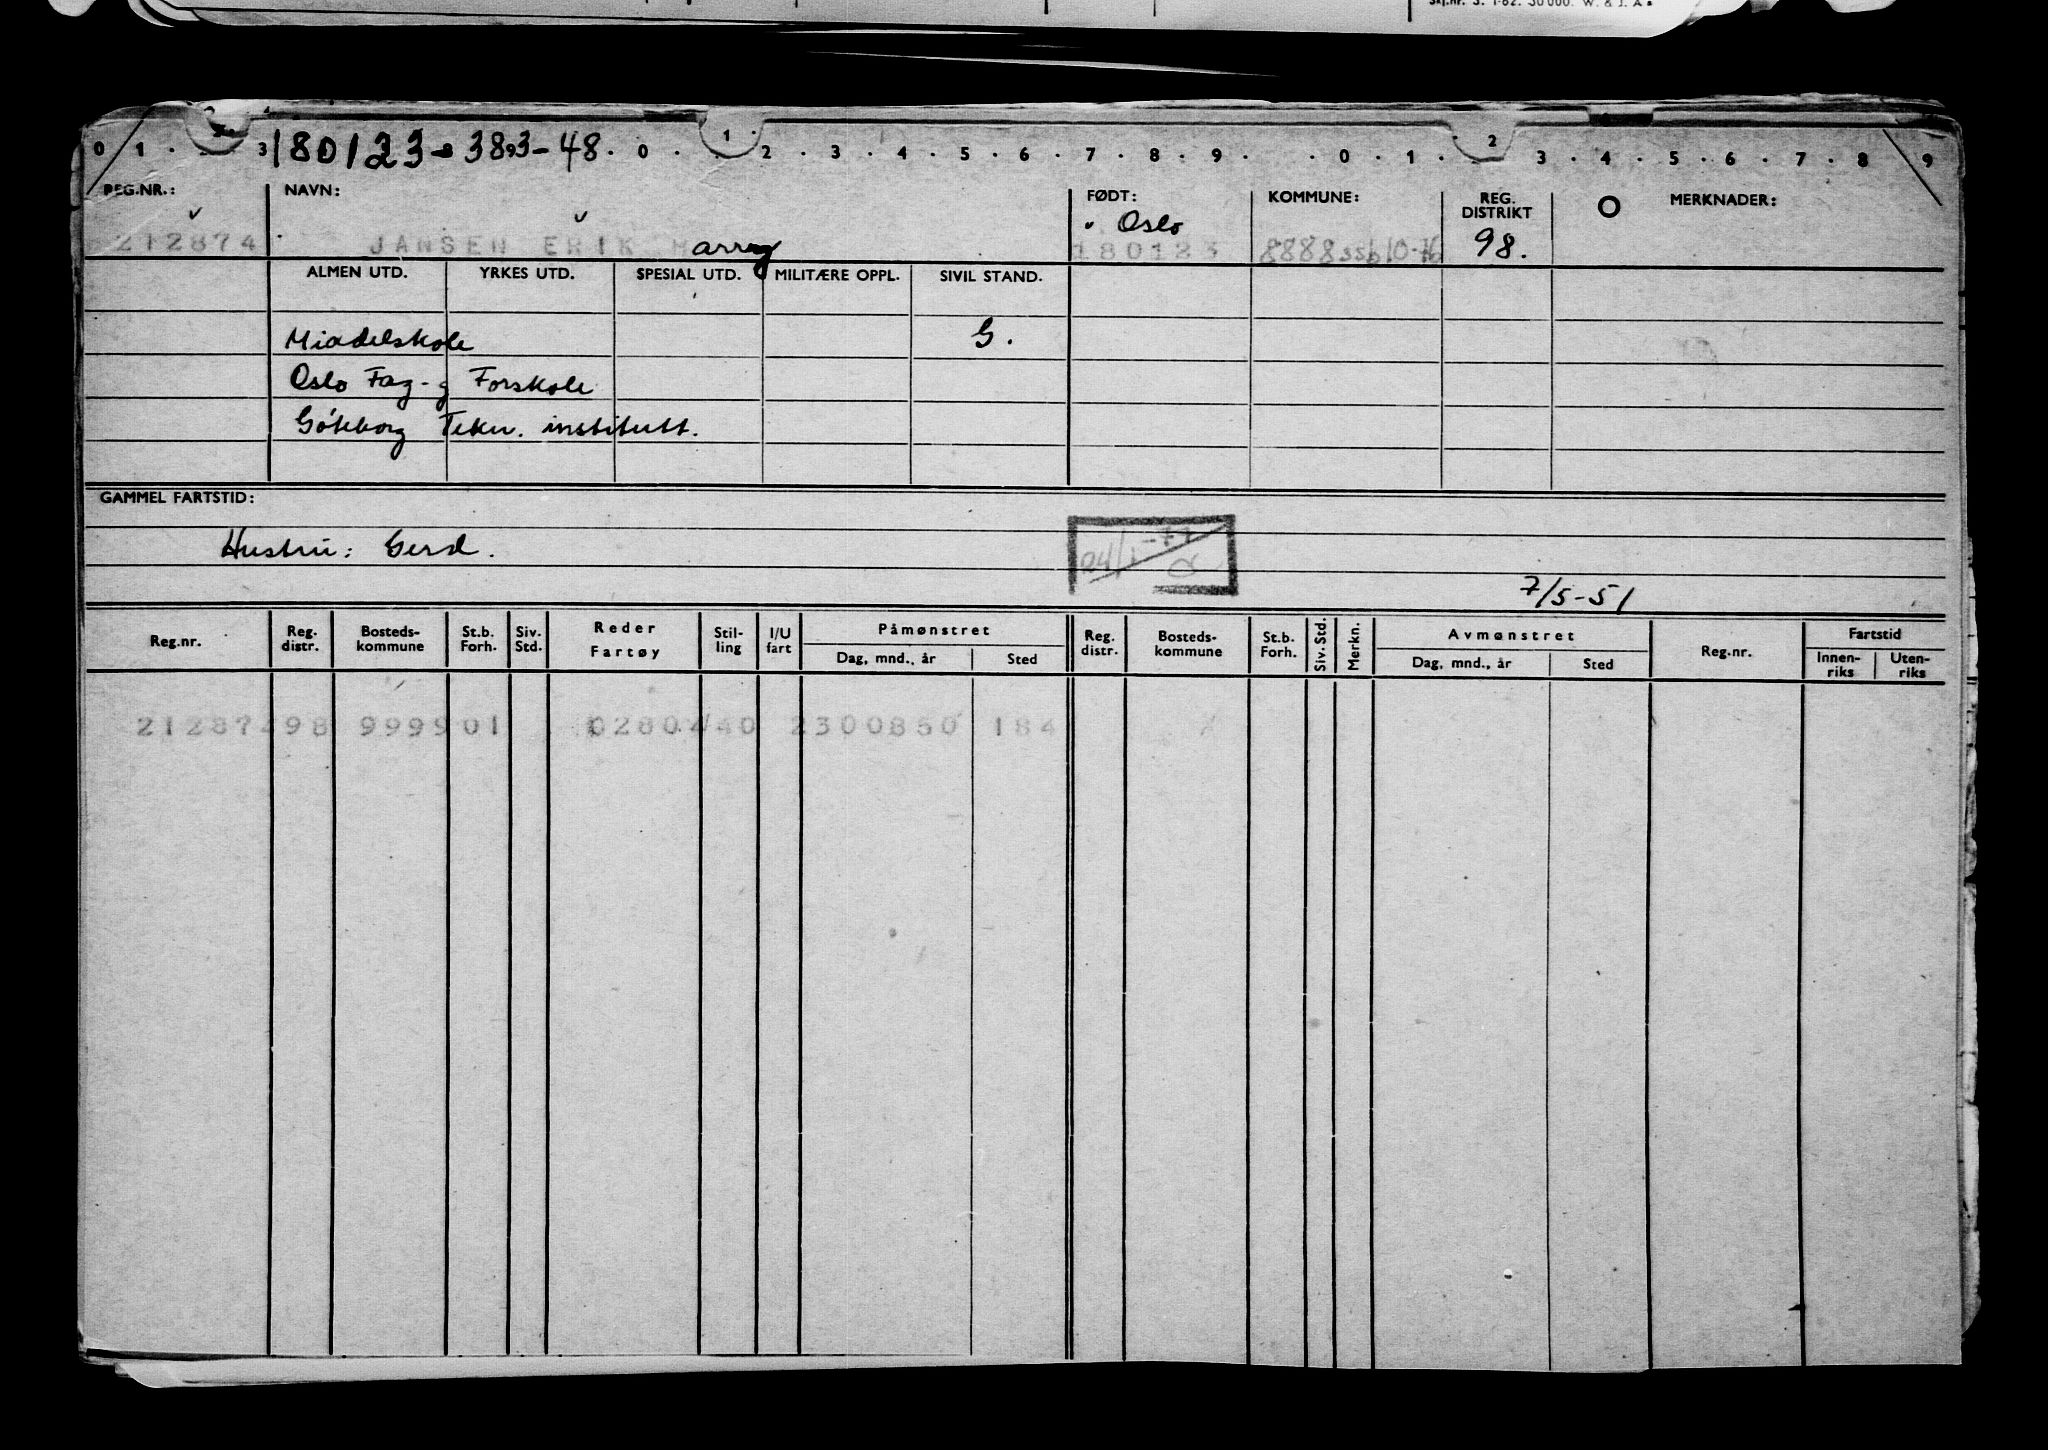 Skj.nr. 3. 1-62. 30 000. W. & J. A.
0 1 . 3 180123-383-48. 0 . 1 . 2 . 3 . 4 . 5 . 6 . 7 . 8 . 9 . . 0 . 1 . 2 3 . 4 . 5 . 6 . 7 . 8 9
REG.NR.: NAVN: FØDT: KOMMUNE: REG. DISTRIKT O MERKNADER:
Oslo
212874 JANSEN ERIK Harry 180123 8888 ssb 10-76 98.
ALMEN UTD. YRKES UTD. SPESIAL UTD. MILITÆRE OPPL. SIVIL STAND.
Middelskole G.
Oslo Fag- og Forskole
Göteborg Tekn. institutt.
GAMMEL FARTSTID:
Hustru: Gerd.
24/1-77
7/5-51
Reg.nr. Reg. distr. Bosteds-kommune St.b. Forh. Siv. Std. Reder Fartøy Stil-ling I/U fart Påmønstret Dag, mnd., år Sted Reg. distr. Bosteds-kommune St.b. Forh. Siv. Std. Merkn. Avmønstret Dag, mnd., år Sted Reg.nr. Fartstid Innen-riks Uten-riks
212874 98 9999 01 02804 40 2300850 184